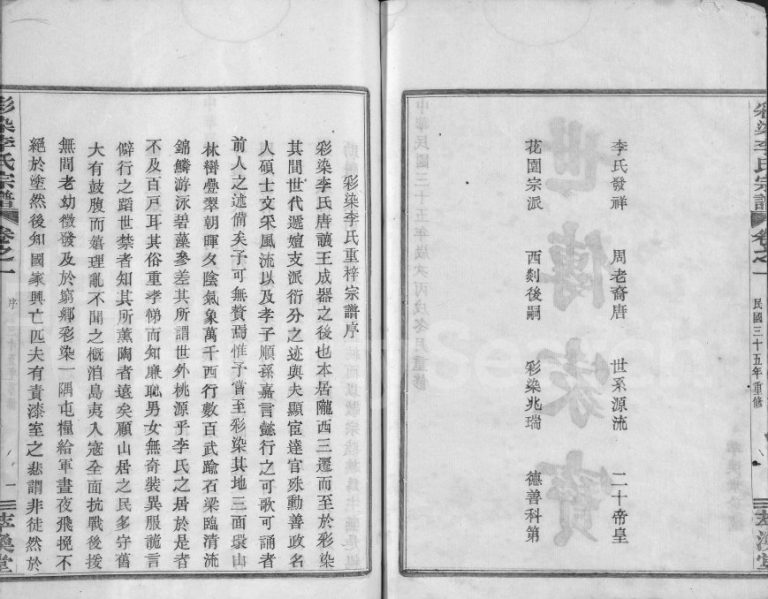 彩染李氏宗譜
卷之一
民國三十五年重修
李氏發祥　周老裔唐　世系源流　二十帝皇
花園宗派　西剡後嗣　彩染兆瑞　德善科第
世傳家寶
中華民國三十五年歲次丙戌冬月重修
彩染李氏重梓宗譜序
彩染李氏唐讓王成器之後也本居隴西三遷而至於彩染
其間世代遞嬗支派衍分之迹與夫顯宦達官殊勳善政名
人碩士文采風流以及孝子順孫嘉言懿行之可歌可誦者
前人之述備矣予可無贅焉惟予嘗至彩染其地三面環山
林巒疊翠朝暉夕陰氣象萬千西行數百武踰石梁臨清流
錦鱗游泳碧藻參差其所謂世外桃源乎李氏之居於是者
不及百戶耳其俗重孝悌而知廉恥男女無奇裝異服詭言
僻行之蹈世禁者知其所薰陶者遠矣顧山居之民多守舊
大有鼓腹而嬉理亂不聞之概洎島夷入寇全面抗戰後援
無間老幼徵發及於窮鄉彩染一隅屯糧給軍晝夜飛挽不
絕於塗然後知國家興亡匹夫有責漆室之悲謂非徒然於
彩染李氏宗譜
卷之一
序
一